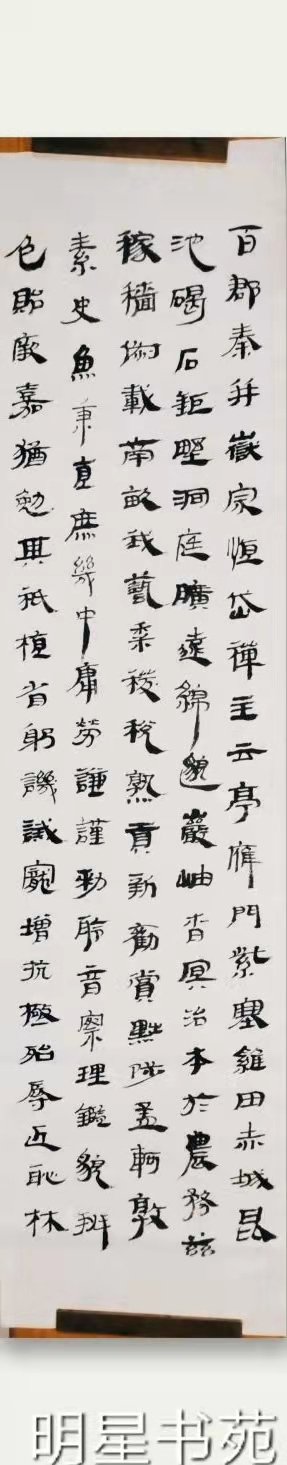 百郡秦并嶽宗恒岱禪主云亭雁門紫塞雞田赤城昆
池碣石鉅野洞庭曠遠綿邈巖岫杳冥治本於農務茲
稼穡俶載南畝我藝黍稷稅熟貢新勸賞黜陟孟軻敦
素史魚秉直庶幾中庸勞謙謹勅聆音察理鑑貌辨
色貽厥嘉猷勉其祗植省躬譏誡寵增抗極殆辱近恥林
明星书苑